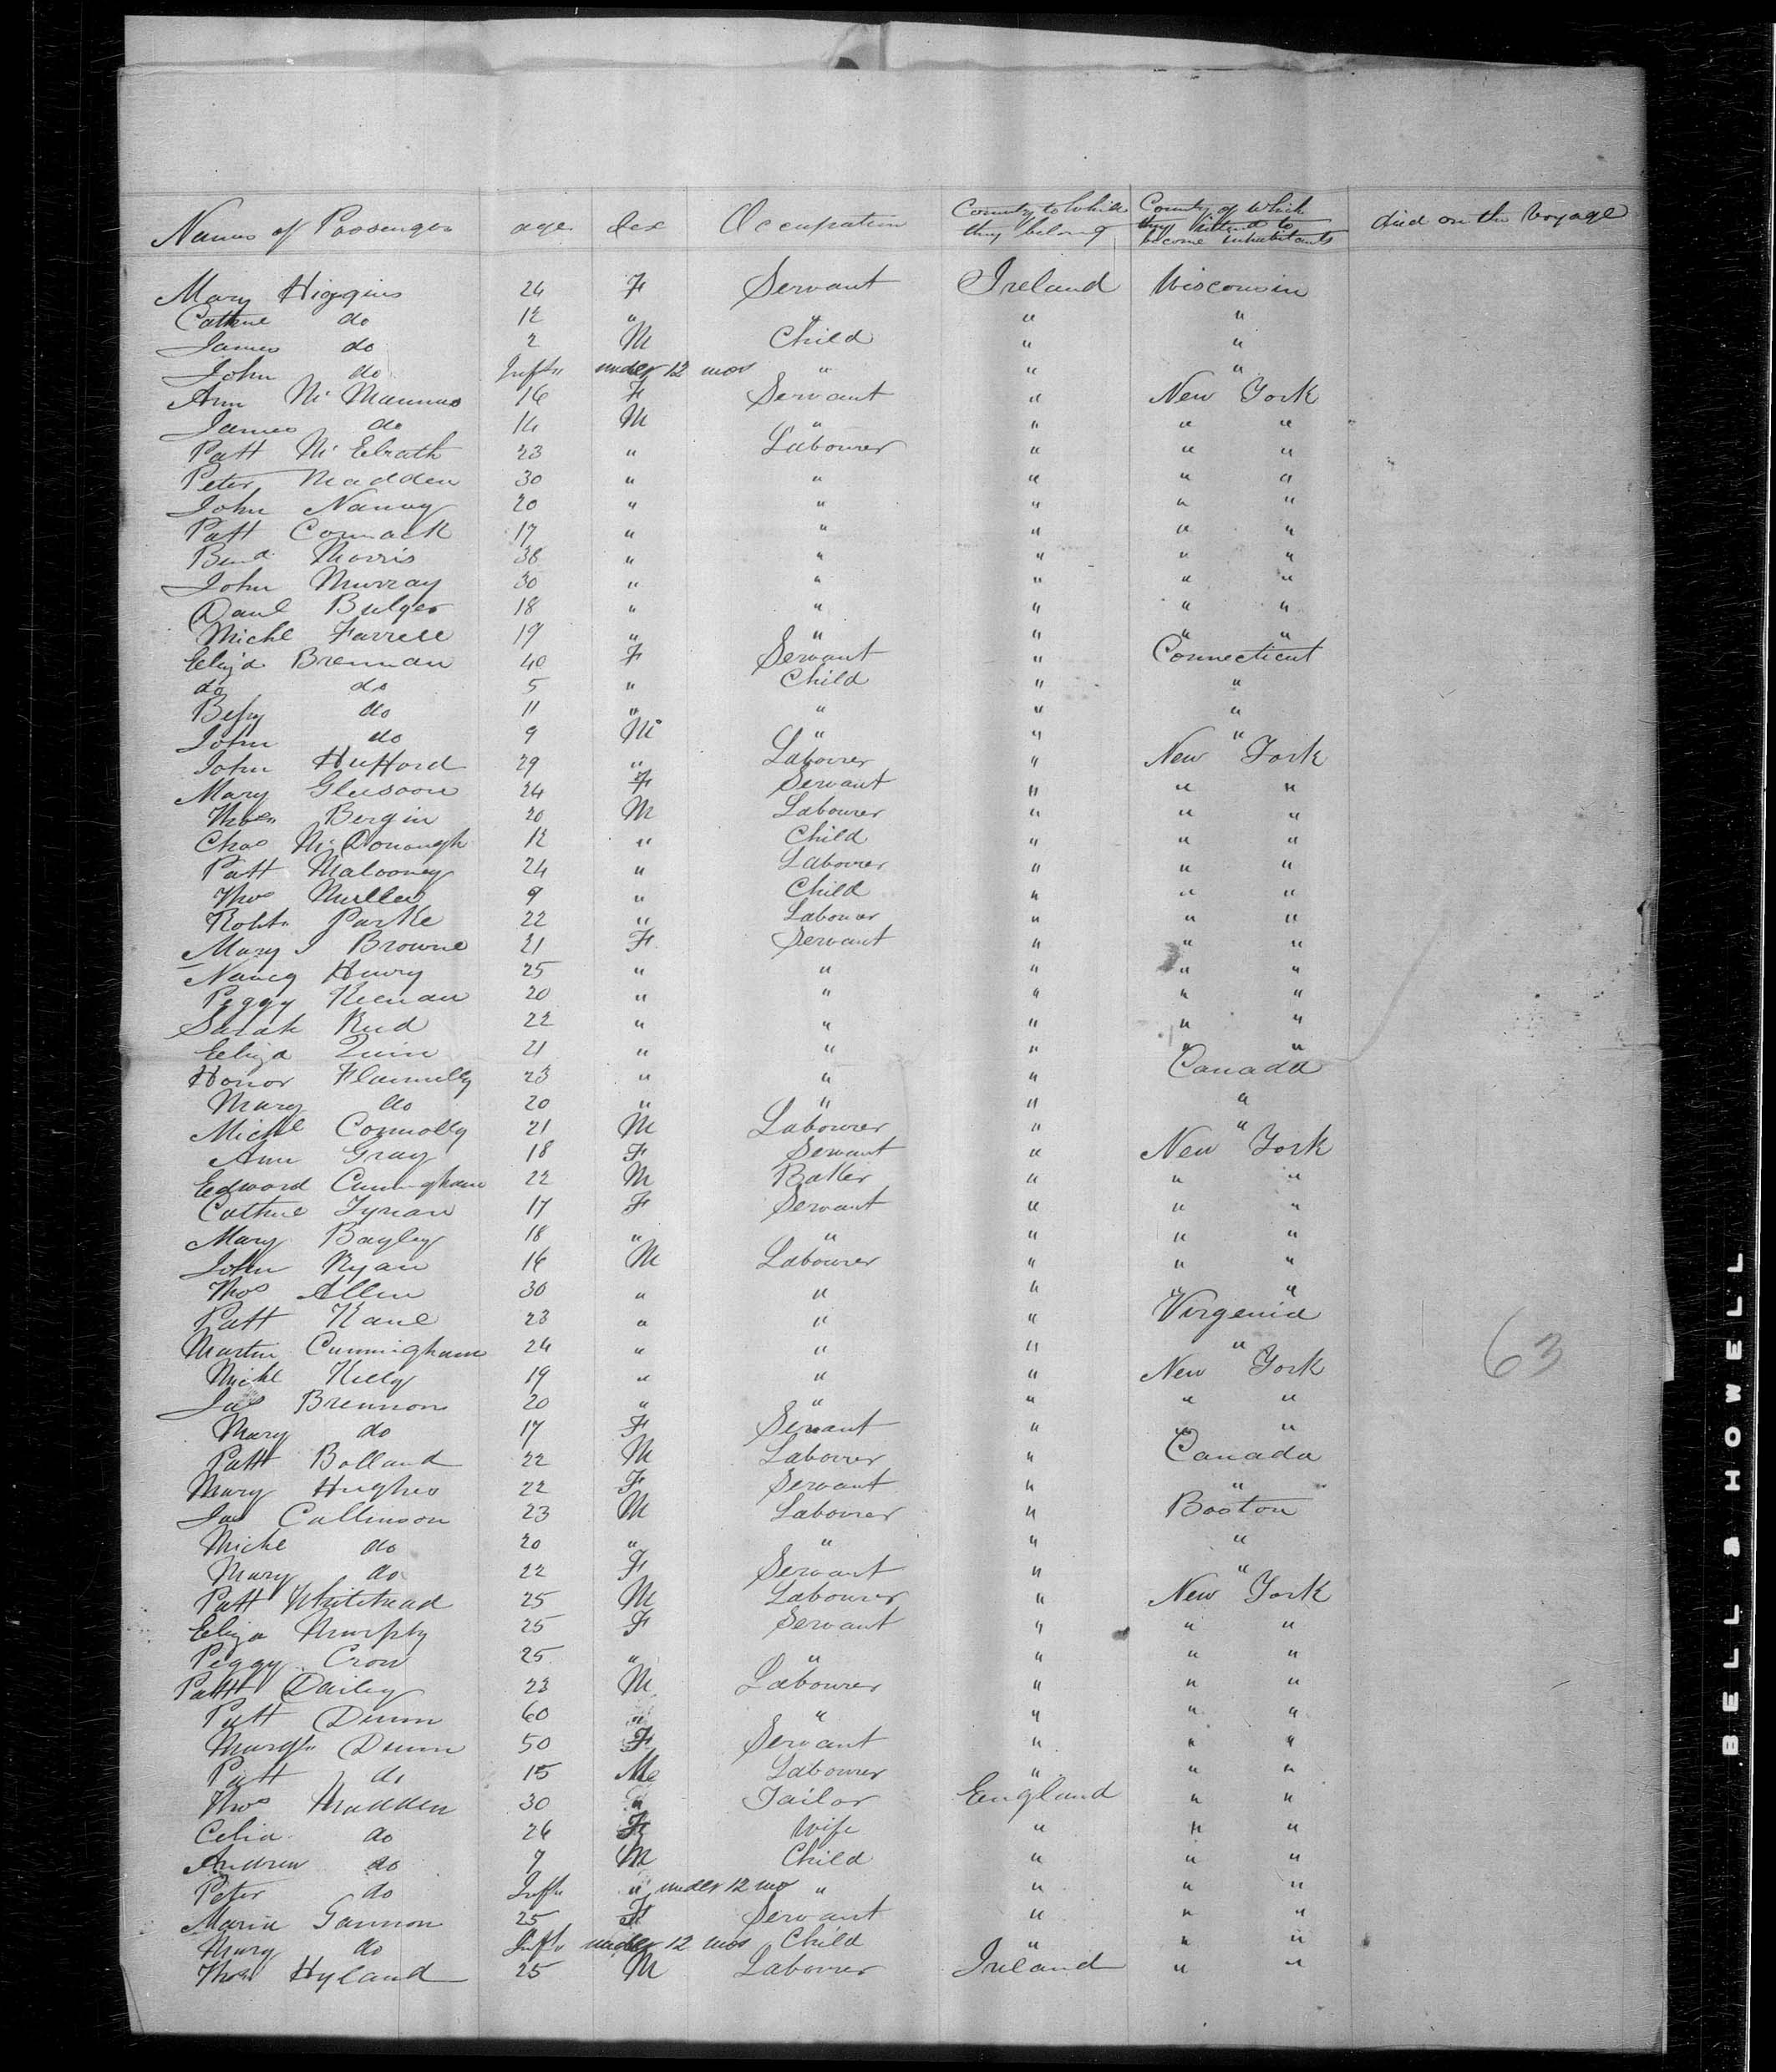 Names of Passengers age Sex Occupation County to which they belong County of which they intend to become inhabitants died on the Voyage
Mary Higgins 24 F Servant Ireland Wisconsin
Cathne do 12 " " " "
James do 2 M Child " "
John do Inft under 12 mos " " "
Ann Mc Mannus 16 F Servant " New York
James do 14 M " " " "
Patt Mc Elrath 23 " Labourer " " "
Peter Madden 30 " " " " "
John Nanny 20 " " " " "
Patt Cormack 17 " " " " "
Bernd Morris 38 " " " " "
John Murray 30 " " " " "
Danl Bulger 18 " " " " "
Michl Farrell 19 " " " " "
Eliza Brennan 40 F Servant " Connecticut
do do 5 " Child " "
Bessy do 11 " " " "
John do 9 M " " "
John Hufford 29 " Labourer " New York
Mary Gleesoon 24 F Servant " " "
Thos Bergin 20 M Labourer " " "
Chas McDonough 12 " Child " " "
Patt Malooney 24 " Labourer " " "
Thos Mullen 9 " Child " " "
Robt Parke 22 " Labourer " " "
Mary J Browne 21 F Servant " " "
Nancy Henry 25 " " " " "
Peggy Keenan 20 " " " " "
Sarah Reid 22 " " " " "
Eliza Quin 21 " " " " "
Honor Flannelly 23 " " " Canada
Mary do 20 " " " "
Michl Connolly 21 M Labourer " "
Ann Gray 18 F Servant " New York
Edward Cunningham 22 M Baker " " "
Cathne Tynan 17 F Servant " " "
Mary Bayley 18 " " " " "
John Ryan 16 M Labourer " " "
Thos Allen 30 " " " " "
Patt Kane 23 " " " Virgenia
Martin Cunningham 24 " " " "
Michl Kelly 19 " " " New York
Jas Brennon 20 " " " " "
Mary do 17 F Servant " " "
Patt Bolland 22 M Labourer " Canada
Mary Hughes 22 F Servant " "
Jas Callinson 23 M Labourer " Boston
Michl do 20 " " " "
Mary do 22 F Servant " "
Patt Whitehead 25 M Labourer " New York
Eliza Murphy 25 F Servant " " "
Peggy Crow 25 " " " " "
Patt Dailey 23 M Labourer " " "
Patt Dunn 60 " " " " "
Margt Dunn 50 F Servant " " "
Patt do 15 M Labourer " " "
Thos Madden 30 " Tailor England " "
Celia do 26 F Wife " " "
Andrew do 7 M Child " " "
Peter do Inft " under 12 mo " " " "
Maria Gannon 25 F Servant " " "
Mary do Inft under 12 mos Child " " "
Thos Hyland 25 M Labourer Ireland " "
63
BELL & HOWELL